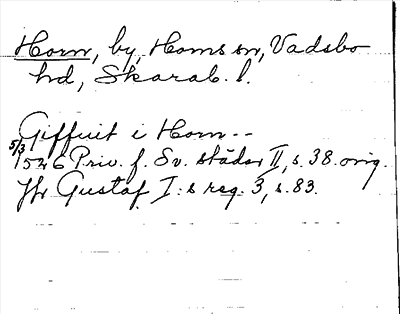 Horn, by, Horns sn, Vadsbo
hd, Skarab. l.
Giffuit i Horn --
5/3 1546 Priv. f. Sv. städer II, s. 38. orig.
Jfr Gustaf I:s reg. 3, s. 83.